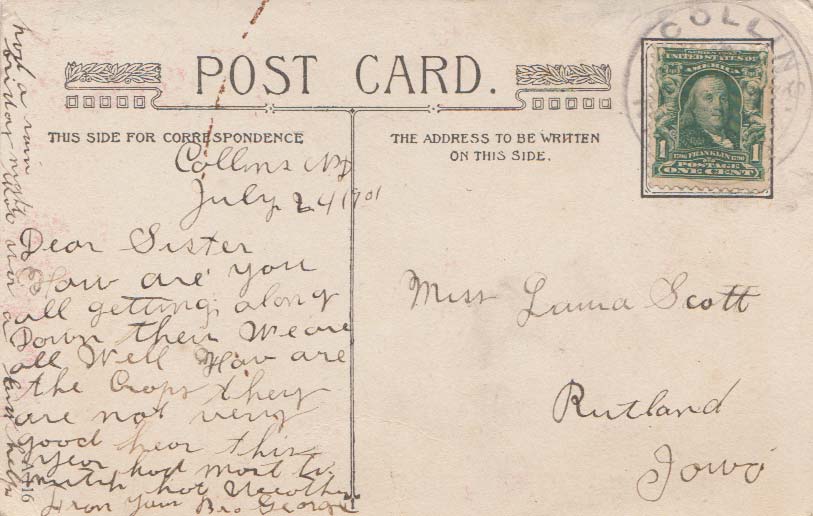 POST CARD.
THIS SIDE FOR CORRESPONDENCE
THE ADDRESS TO BE WRITTEN
ON THIS SIDE.
COLLINS
SERIES 1902
UNITED STATES OF
AMERICA
1706 FRANKLIN 1790
1 1
POSTAGE
ONE CENT
Collins ND
July 24 1901
Dear Sister
How are you
all getting along
Down their We are
all Well How are
the Crops they
are not very
good hear this
Year had most to
much hot Weather
From Your Bro George
had a rain
night
Miss Laura Scott
Rutland
Iowa
A 116